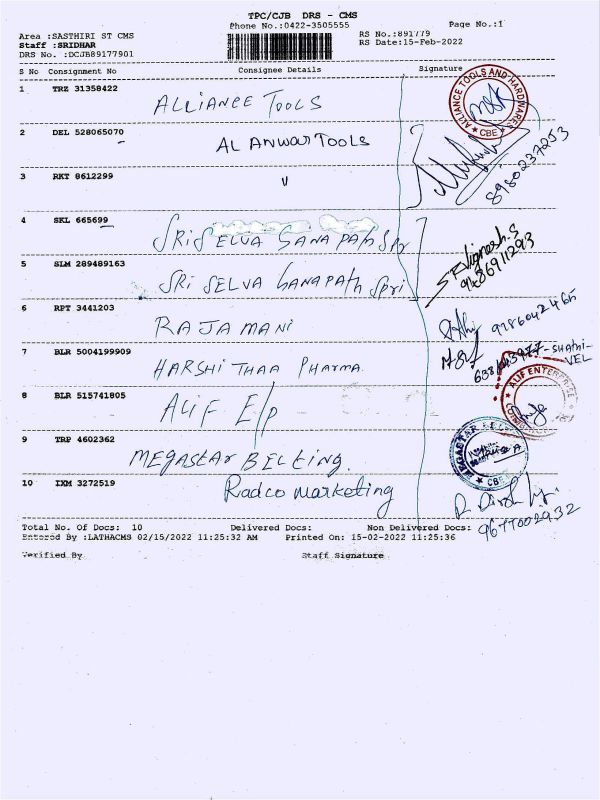 TPC/CJB DRS - CMS
Phone No.:0422-3505555
Page No.:1
Area :SASTHIRI ST CMS
Staff :SRIDHAR
DRS No. :DCJB89177901
RS No.:891779
RS Date:15-Feb-2022
S No Consignment No Consignee Details Signature
1 TRZ 31358422 ALLIANCE TOOLS
ALLIANCE TOOLS AND HARDWARES
CBE
2 DEL 528065070 AL ANWAR TOOLS
8980237253
3 RKT 8612299 "
4 SKL 665699 SRI SELVA GANAPATH SPR
Vignesh.S
9486911293
5 SLM 289489163 SRI SELVA GANAPATH SPRI
6 RPT 3441203 RAJAMANI
7 BLR 5004199909 HARSHITHAA PHARMA
8 BLR 515741805 ALIF E/P
ALIF ENTERPRISE
9 TRP 4602362 MEGASTAR BELTING.
MEGASTAR
CBE
10 IXM 3272519 Radco marketing
9677002932
Total No. Of Docs: 10 Delivered Docs: Non Delivered Docs:
Entered By :LATHACMS 02/15/2022 11:25:32 AM Printed On: 15-02-2022 11:25:36
Verified By Staff Signature